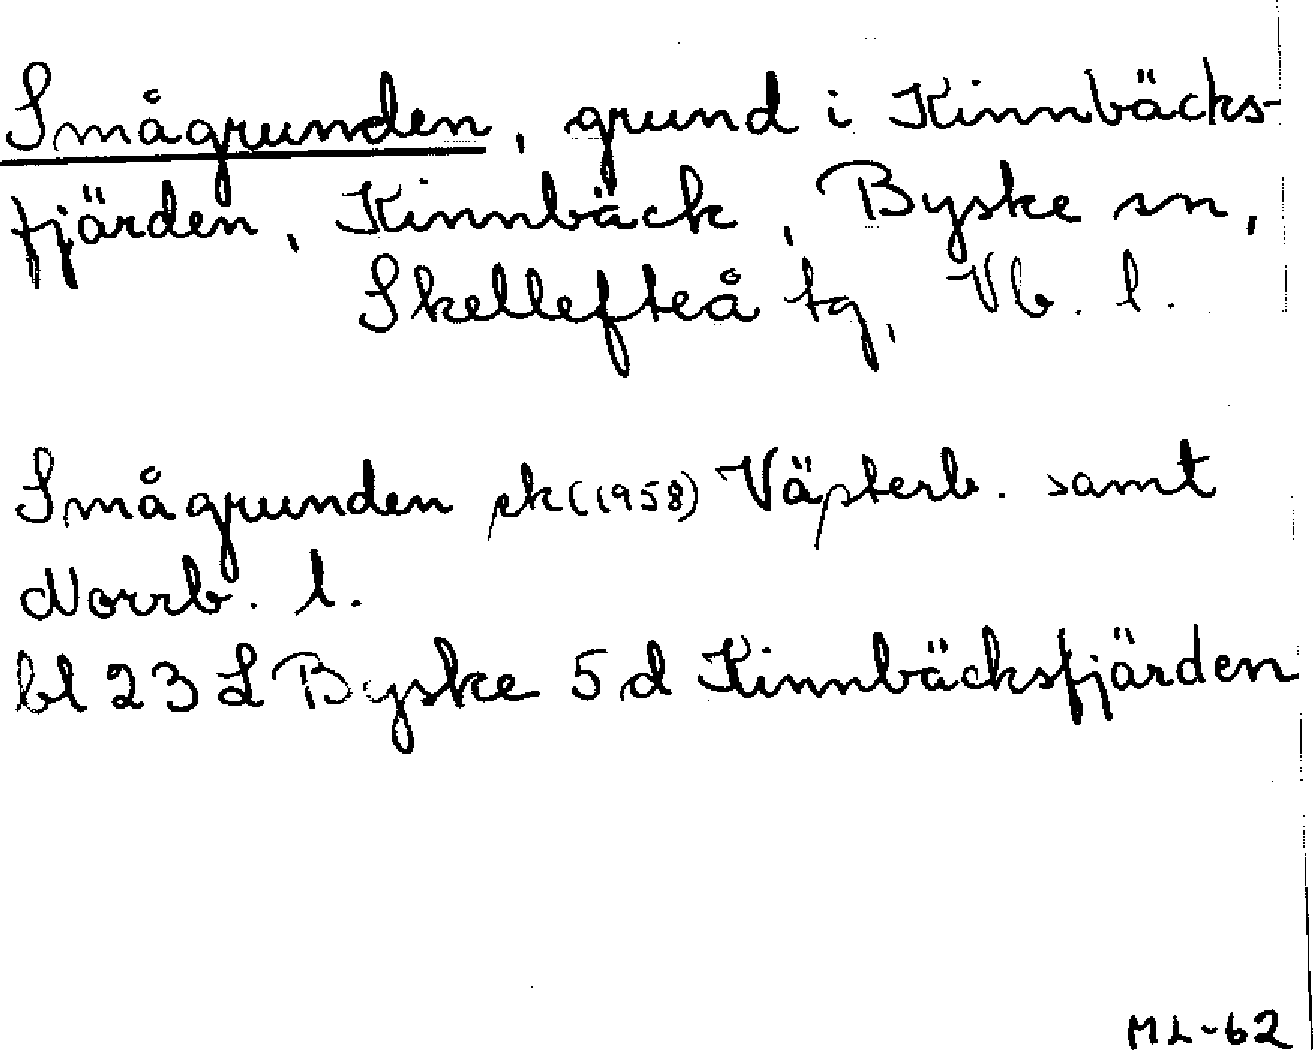 Smågrunden, grund i Kinnbäcks-
fjärden, Kinnbäck, Byske sn,
Skellefteå tg, Vb. l.
Smågrunden ek (1958) Västerb. samt
Norrb. l.
bl 23 L Byske 5 d Kinnbäcksfjärden
ML-62